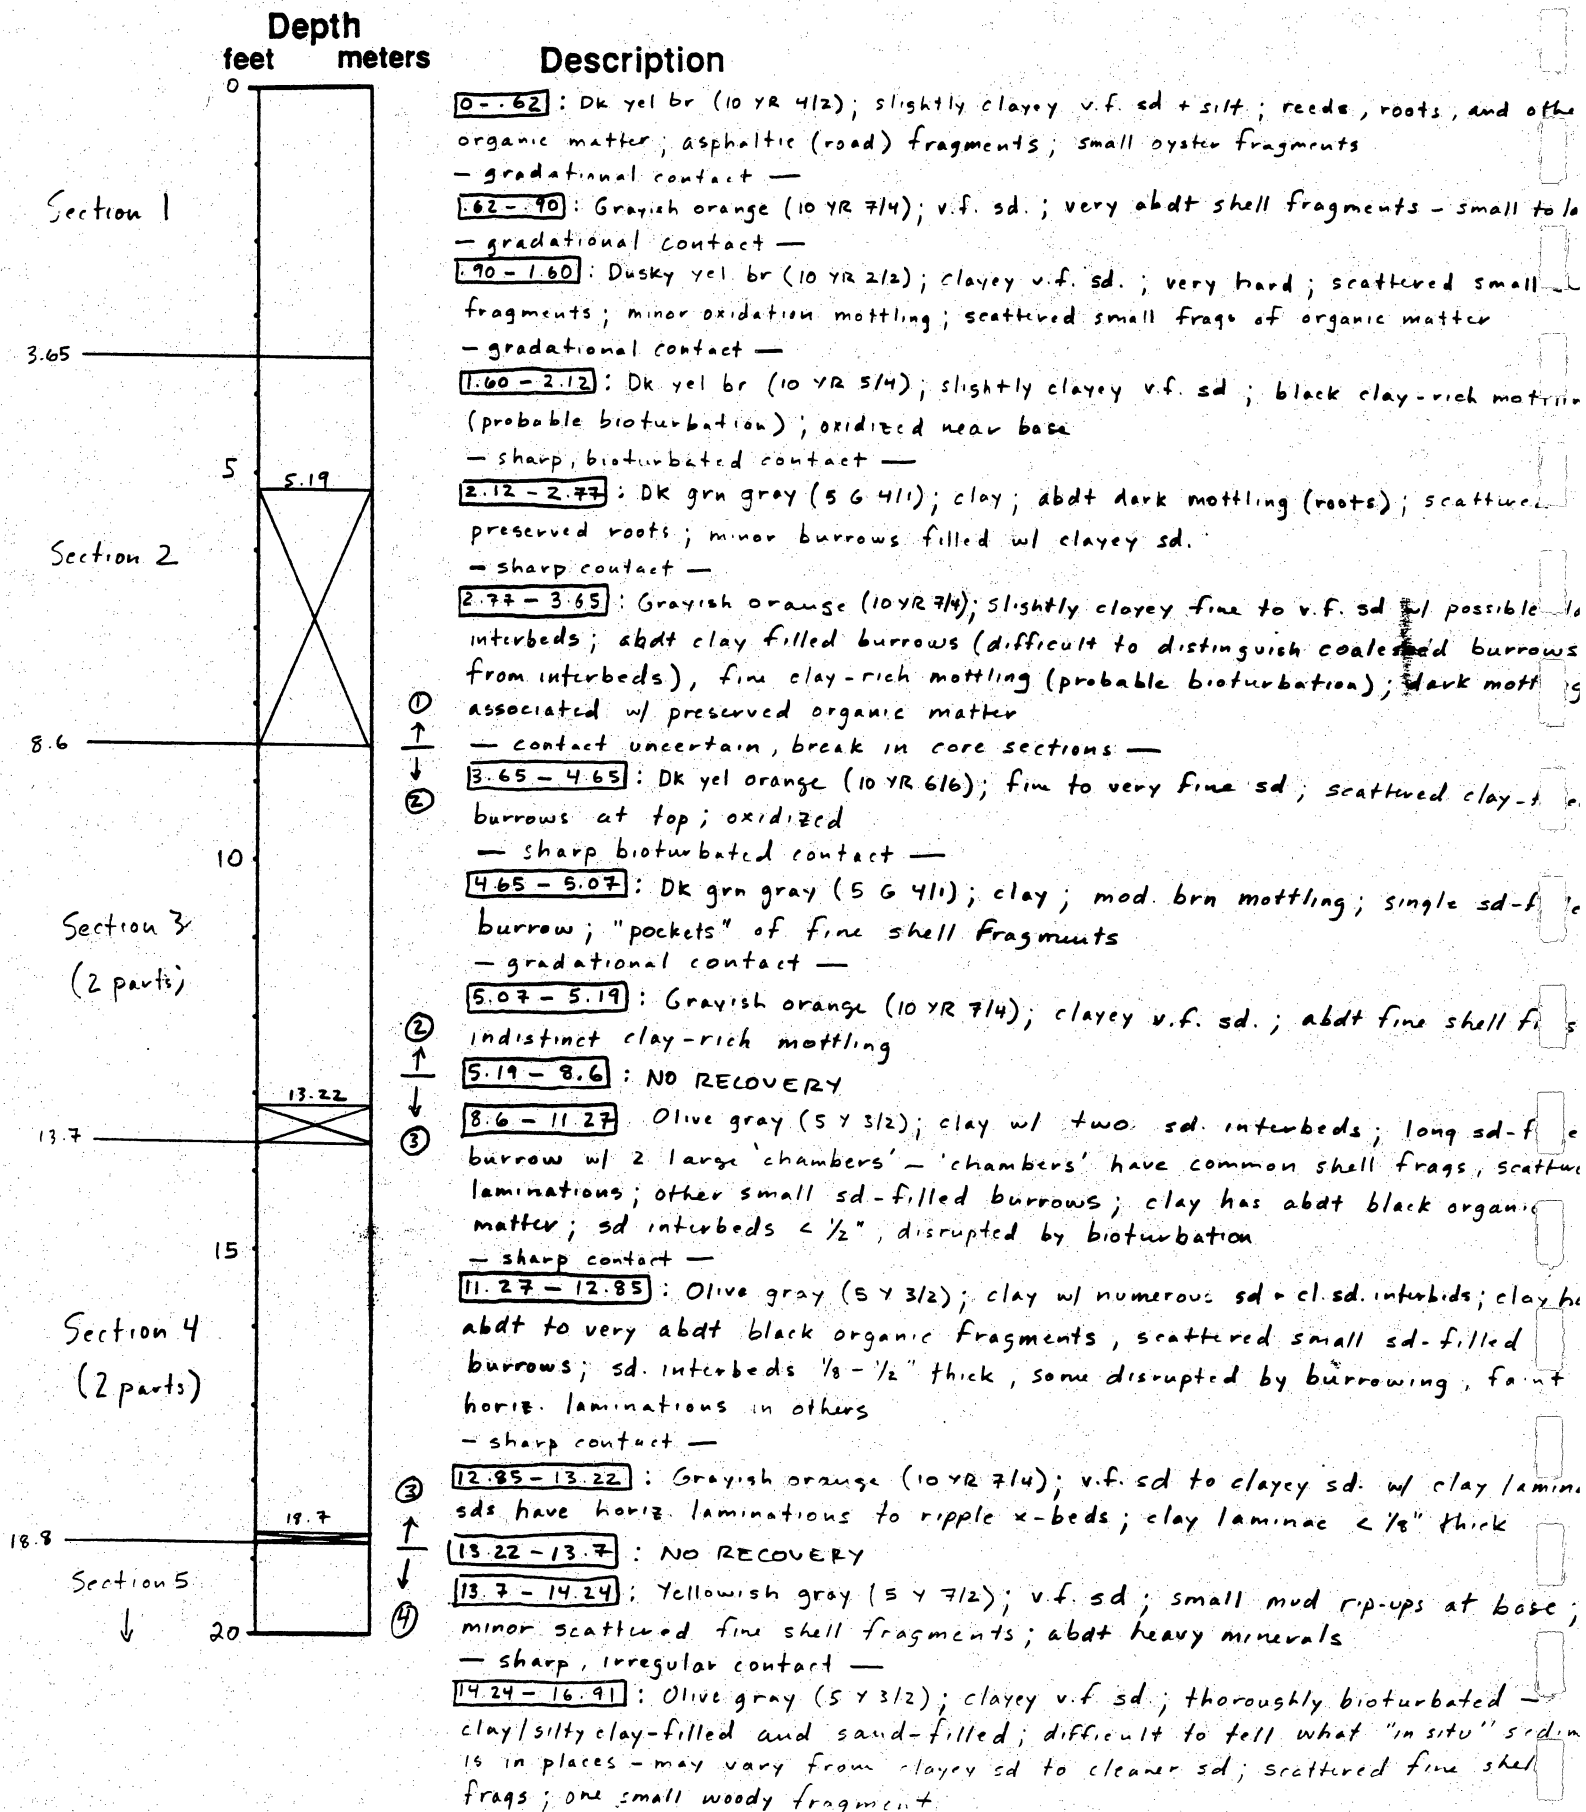 Depth
feet meters Description
0
0 - .62 : Dk yel br (10 YR 4/2); slightly clayey v.f. sd + silt ; reeds, roots, and othe
organic matter; asphaltic (road) fragments; small oyster fragments
— gradational contact —
Section 1
.62 - .90 : Grayish orange (10 YR 7/4); v.f. sd. ; very abdt shell fragments - small to la
— gradational contact —
.90 - 1.60 : Dusky yel br (10 YR 2/2); clayey v.f. sd. ; very hard ; scattered small
fragments; minor oxidation mottling; scattered small frags of organic matter
— gradational contact —
3.65
1.60 - 2.12 : Dk yel br (10 YR 5/4); slightly clayey v.f. sd ; black clay-rich
(probable bioturbation); oxidized near base
— sharp, bioturbated contact —
5
5.19
2.12 - 2.77 : Dk grn gray (5 G 4/1); clay; abdt dark mottling (roots);
preserved roots; minor burrows filled w/ clayey sd.
Section 2
— sharp contact —
2.77 - 3.65 : Grayish orange (10 YR 7/4); slightly clayey fine to v.f. sd w/ possible
interbeds; abdt clay filled burrows (difficult to distinguish burrows
from interbeds), fine clay-rich mottling (probable bioturbation); dark mott
associated w/ preserved organic matter
① ↑
8.6
— contact uncertain, break in core sections —
↓ ②
3.65 - 4.65 : Dk yel orange (10 YR 6/6); fine to very fine sd ; scattered clay-
burrows at top; oxidized
— sharp bioturbated contact —
10
4.65 - 5.07 : Dk grn gray (5 G 4/1); clay; mod. brn mottling; single sd-f
burrow; "pockets" of fine shell fragments
— gradational contact —
Section 3
(2 parts)
5.07 - 5.19 : Grayish orange (10 YR 7/4); clayey v.f. sd. ; abdt fine shell
indistinct clay-rich mottling
② ↑
5.19 - 8.6 : NO RECOVERY
13.22
↓ ③
13.7
8.6 - 11.27 Olive gray (5 Y 3/2); clay w/ two sd. interbeds; long sd-f
burrow w/ 2 large 'chambers' - 'chambers' have common shell frags,
laminations; other small sd-filled burrows; clay has abdt black organic
matter; sd interbeds < 1/2", disrupted by bioturbation
15
— sharp contact —
11.27 - 12.85 : Olive gray (5 Y 3/2); clay w/ numerous sd + cl. sd. interbids; clay ha
abdt to very abdt black organic fragments, scattered small sd-filled
burrows; sd. interbeds 1/8 - 1/2" thick, some disrupted by burrowing, faint
horiz. laminations in others
Section 4
(2 parts)
— sharp contact —
12.85 - 13.22 : Grayish orange (10 YR 7/4); v.f. sd to clayey sd. w/ clay lamin
sds have horiz. laminations to ripple x-beds; clay laminae < 1/8" thick
③ ↑
18.7
18.8
13.22 - 13.7 : NO RECOVERY
↓ ④
Section 5
↓
20
13.7 - 14.24 : Yellowish gray (5 Y 7/2); v.f. sd ; small mud rip-ups at base;
minor scattered fine shell fragments; abdt heavy minerals
— sharp, irregular contact —
14.24 - 16.91 : Olive gray (5 Y 3/2); clayey v.f. sd ; thoroughly bioturbated —
clay/silty clay-filled and sand-filled; difficult to tell what "in situ" sedim
is in places - may vary from clayey sd to cleaner sd; scattered fine shel
frags; one small woody fragment